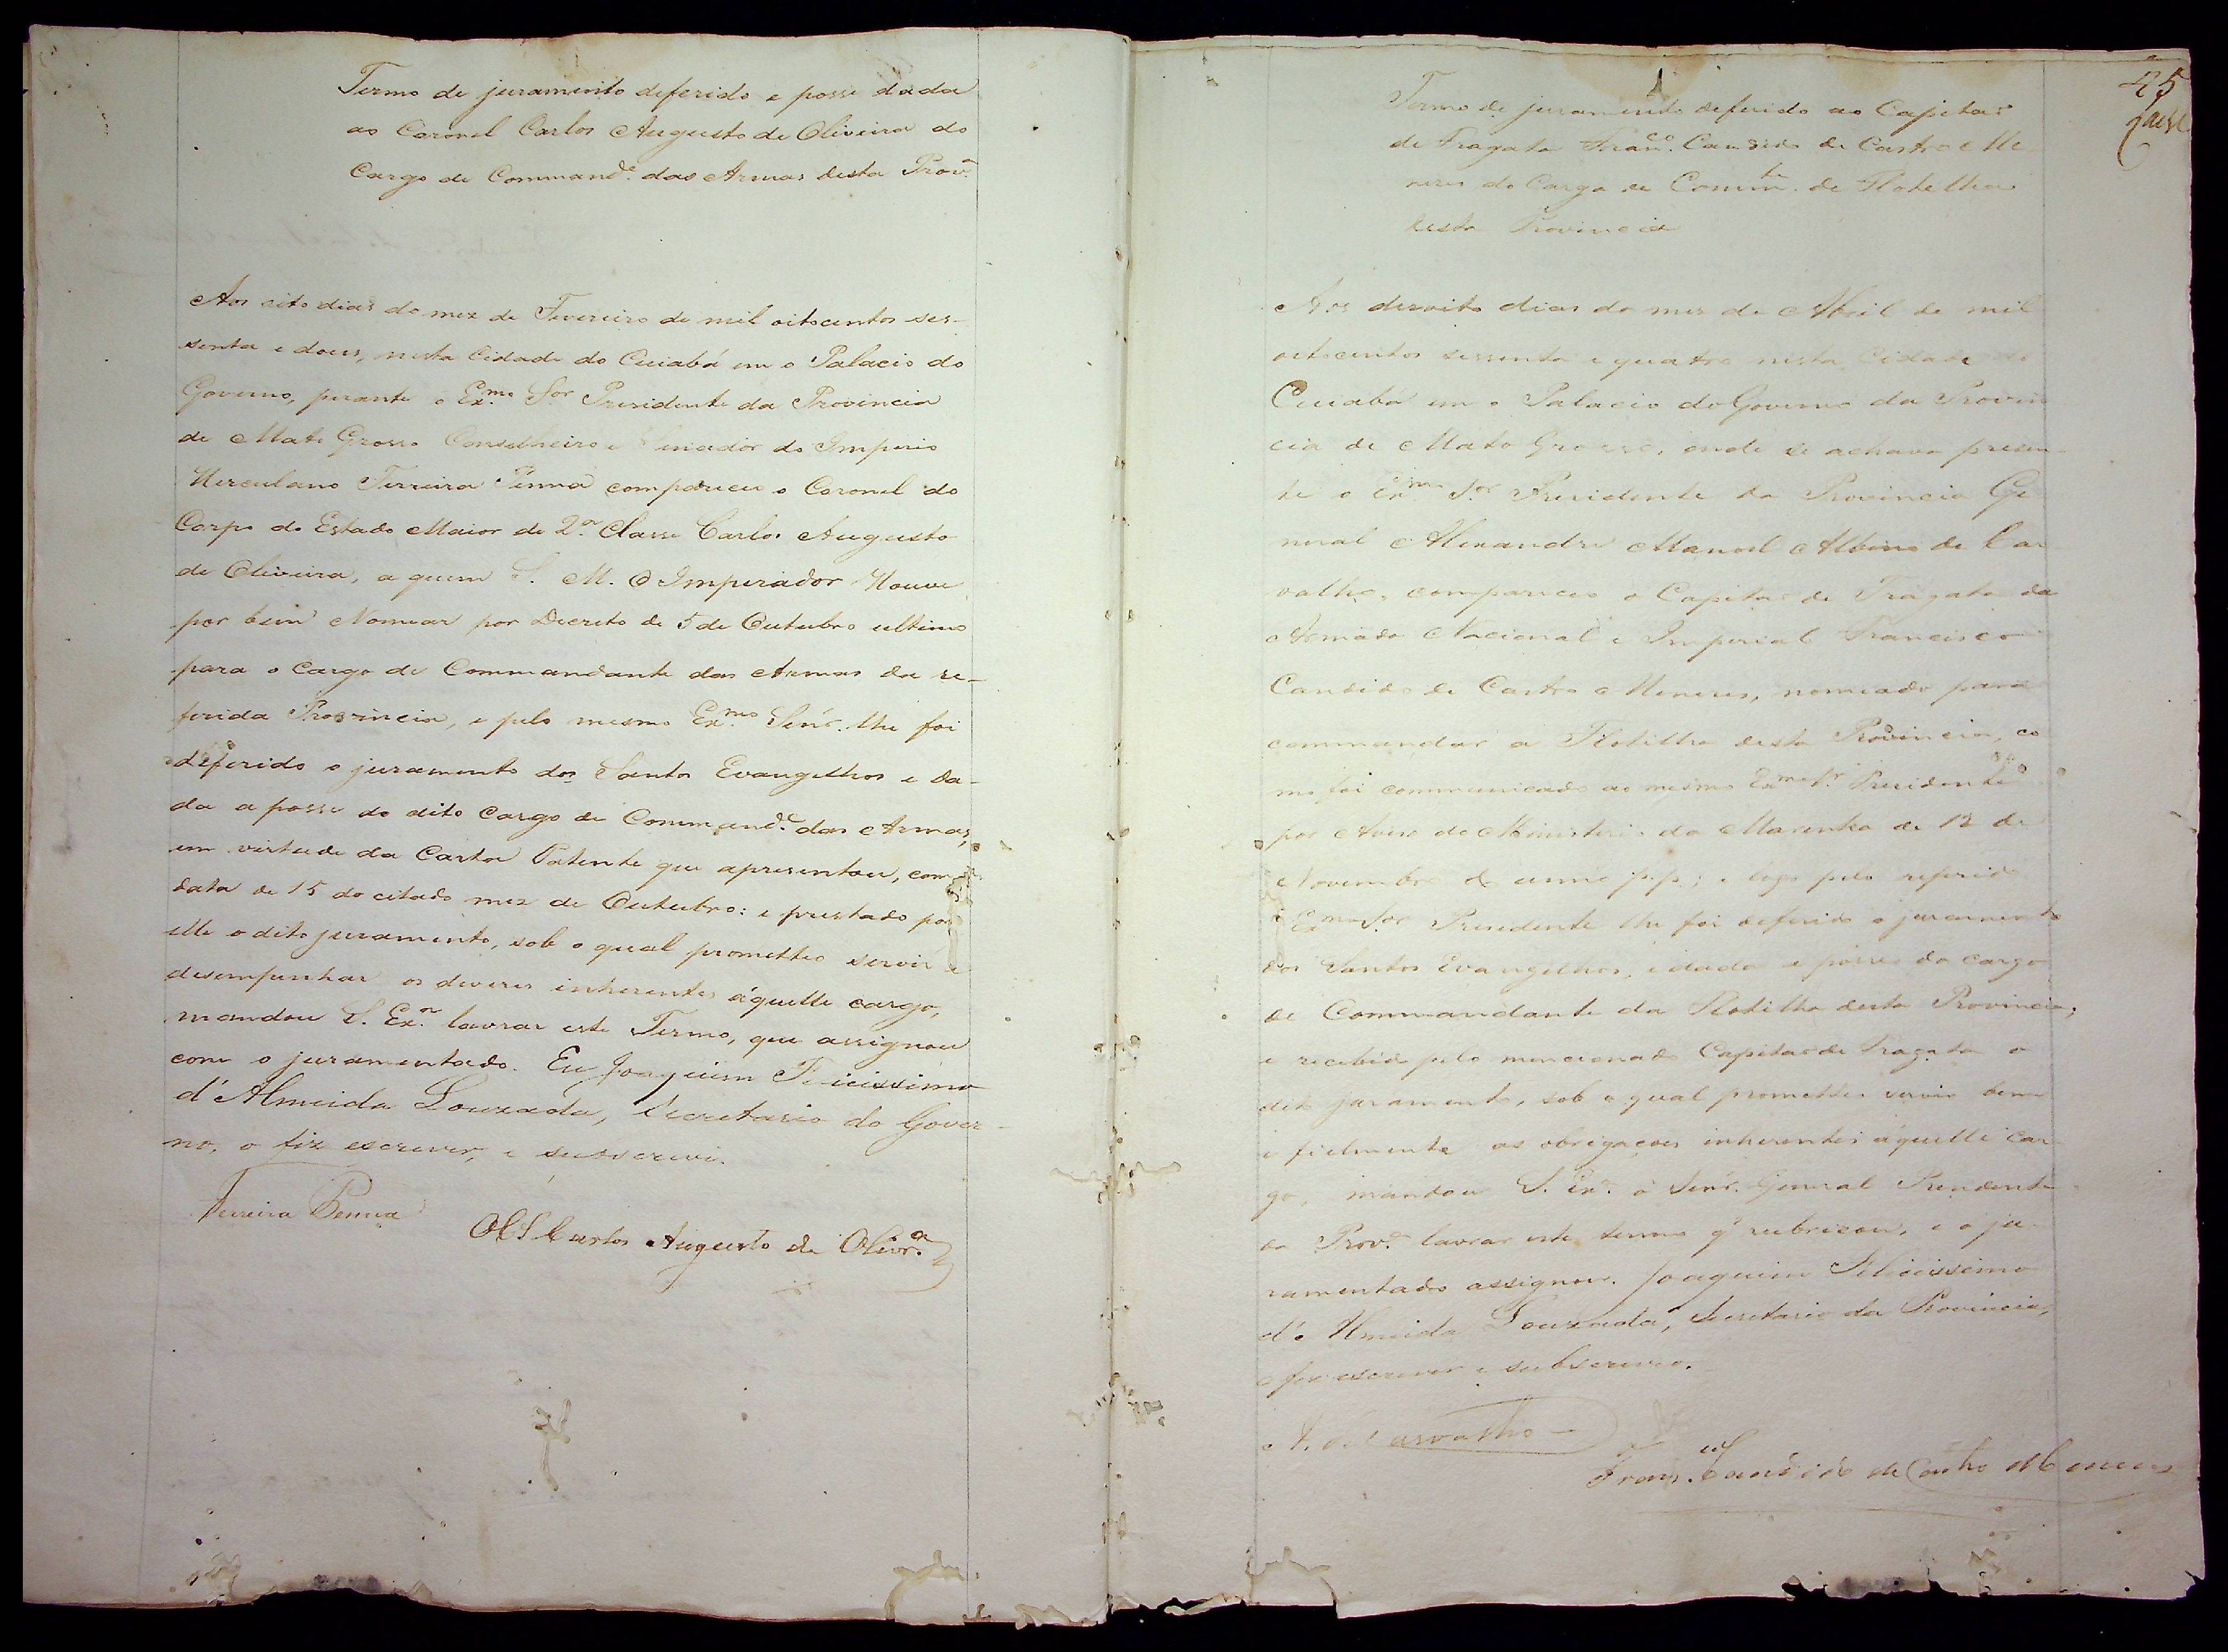 Termo de juramento deferido e posse dada
ao Coronel Carlos Augusto de Oliveira do
Cargo de Command.e das Armas desta Prov.a
Aos oito dias do mez de Fevereiro de mil oitocentos ses-
senta e dous, nesta Cidade do Cuiabá em o Palacio do
Governo, perante o Ex.mo Sor Presidente da Provincia
de Mato Grosso Conselheiro e Senador do Imperio
Herculano Ferreira Penna compareceu o Coronel do
Corpo do Estado Maior de 2.a Classe Carlos Augusto
de Oliveira, a quem S. M. O Imperador Houve
por bem Nomear por Decreto de 5 de Outubro ultimo
para o Cargo de Commandante das Armas da re-
ferida Provincia, e pelo mesmo Ex.mo Senr. lhe foi
deferido o juramento dos Santos Evangelhos e da-
da a posse do dito Cargo de Command.e das Armas,
em virtude da Carta Patente que apresentou, com
data de 15 do citado mez de Outubro: e prestado por
elle o dito juramento, sob o qual prometteo servir e
desempenhar os deveres inherentes áquelle cargo,
mandou S. Ex.a lavrar este Termo, que assignou
com o juramentado. Eu Joaquim Felicissimo
d'Almeida Louzada, Secretario do Gover-
no, o fiz escrever, e subscrevi.
Ferreira Penna
Carlos Augusto de Olivr.a
45
Termo de juramento deferido ao Capitaõ
de Fragata Fran.co Candido de Castro Me
nezes do Cargo de Comm.te de Flotilha
desta Provincia
Aos dezoito dias do mez de Abril de mil
oitocentos sessenta e quatro nesta Cidade do
Cuiabá em o Palacio do Governo da Provin
cia de Mato Grosso, onde se achava presen-
te o Ex.mo S.or Presidente da Provincia Ge
neral Alexandre Manoel Albino de Car
valho, compareceo o Capitaõ de Fragata da
Armada Nacional e Imperial Francisco
Candido de Castro Menezes, nomeado para
commandar a Flotilha desta Provincia, co
mo foi communicado ao mesmo Ex.mo Sr. Presidente
por Aviso do Ministerio da Marinha de 12 de
Novembro do anno p.p.; e logo pelo referido
Ex.mo Sor Presidente lhe foi deferido o juramento
dos Santos Evangelhos, e dada a posse do cargo
de Commandante da Flotilha desta Provincia;
e recebido pelo mencionado Capitaõ de Fragata o
dito juramento, sob o qual prometteo servir bem
e fielmente as obrigaçoes inherentes áquelle car
go, mandou S. Ex.a o Senr. General Presidente
da Prov.a lavrar este termo q' rubricou, e o ju-
ramentado assignou. Joaquim Felicissimo
d'Almeida Louzada, Secretario da Provincia,
o fiz escrever e subscrevo.
A. de Carvalho
Fran.co Candido de Castro Menezes